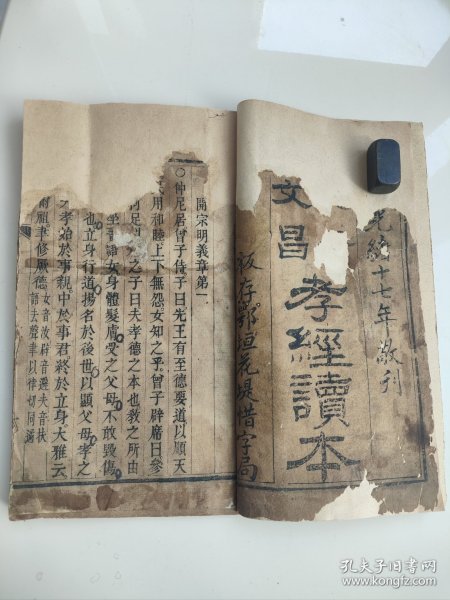 光緒十七年敬刊
文昌孝經讀本
板存鄂垣花堤惜字局
開宗明義章第一
○仲尼居曾子侍子曰先王有至德要道以順天
用和睦上下無怨女知之乎曾子辟席曰參
何足之子曰夫孝德之本也教之所由
吾語女身體髮膚受之父母不敢毀傷
也立身行道揚名於後世以顯父母孝之
夫孝始於事親中於事君終於立身大雅云
爾祖聿修厥德
女音汝辟音避夫音扶
語去聲聿以律切同遹
孔夫子旧书网
www.kongfz.com